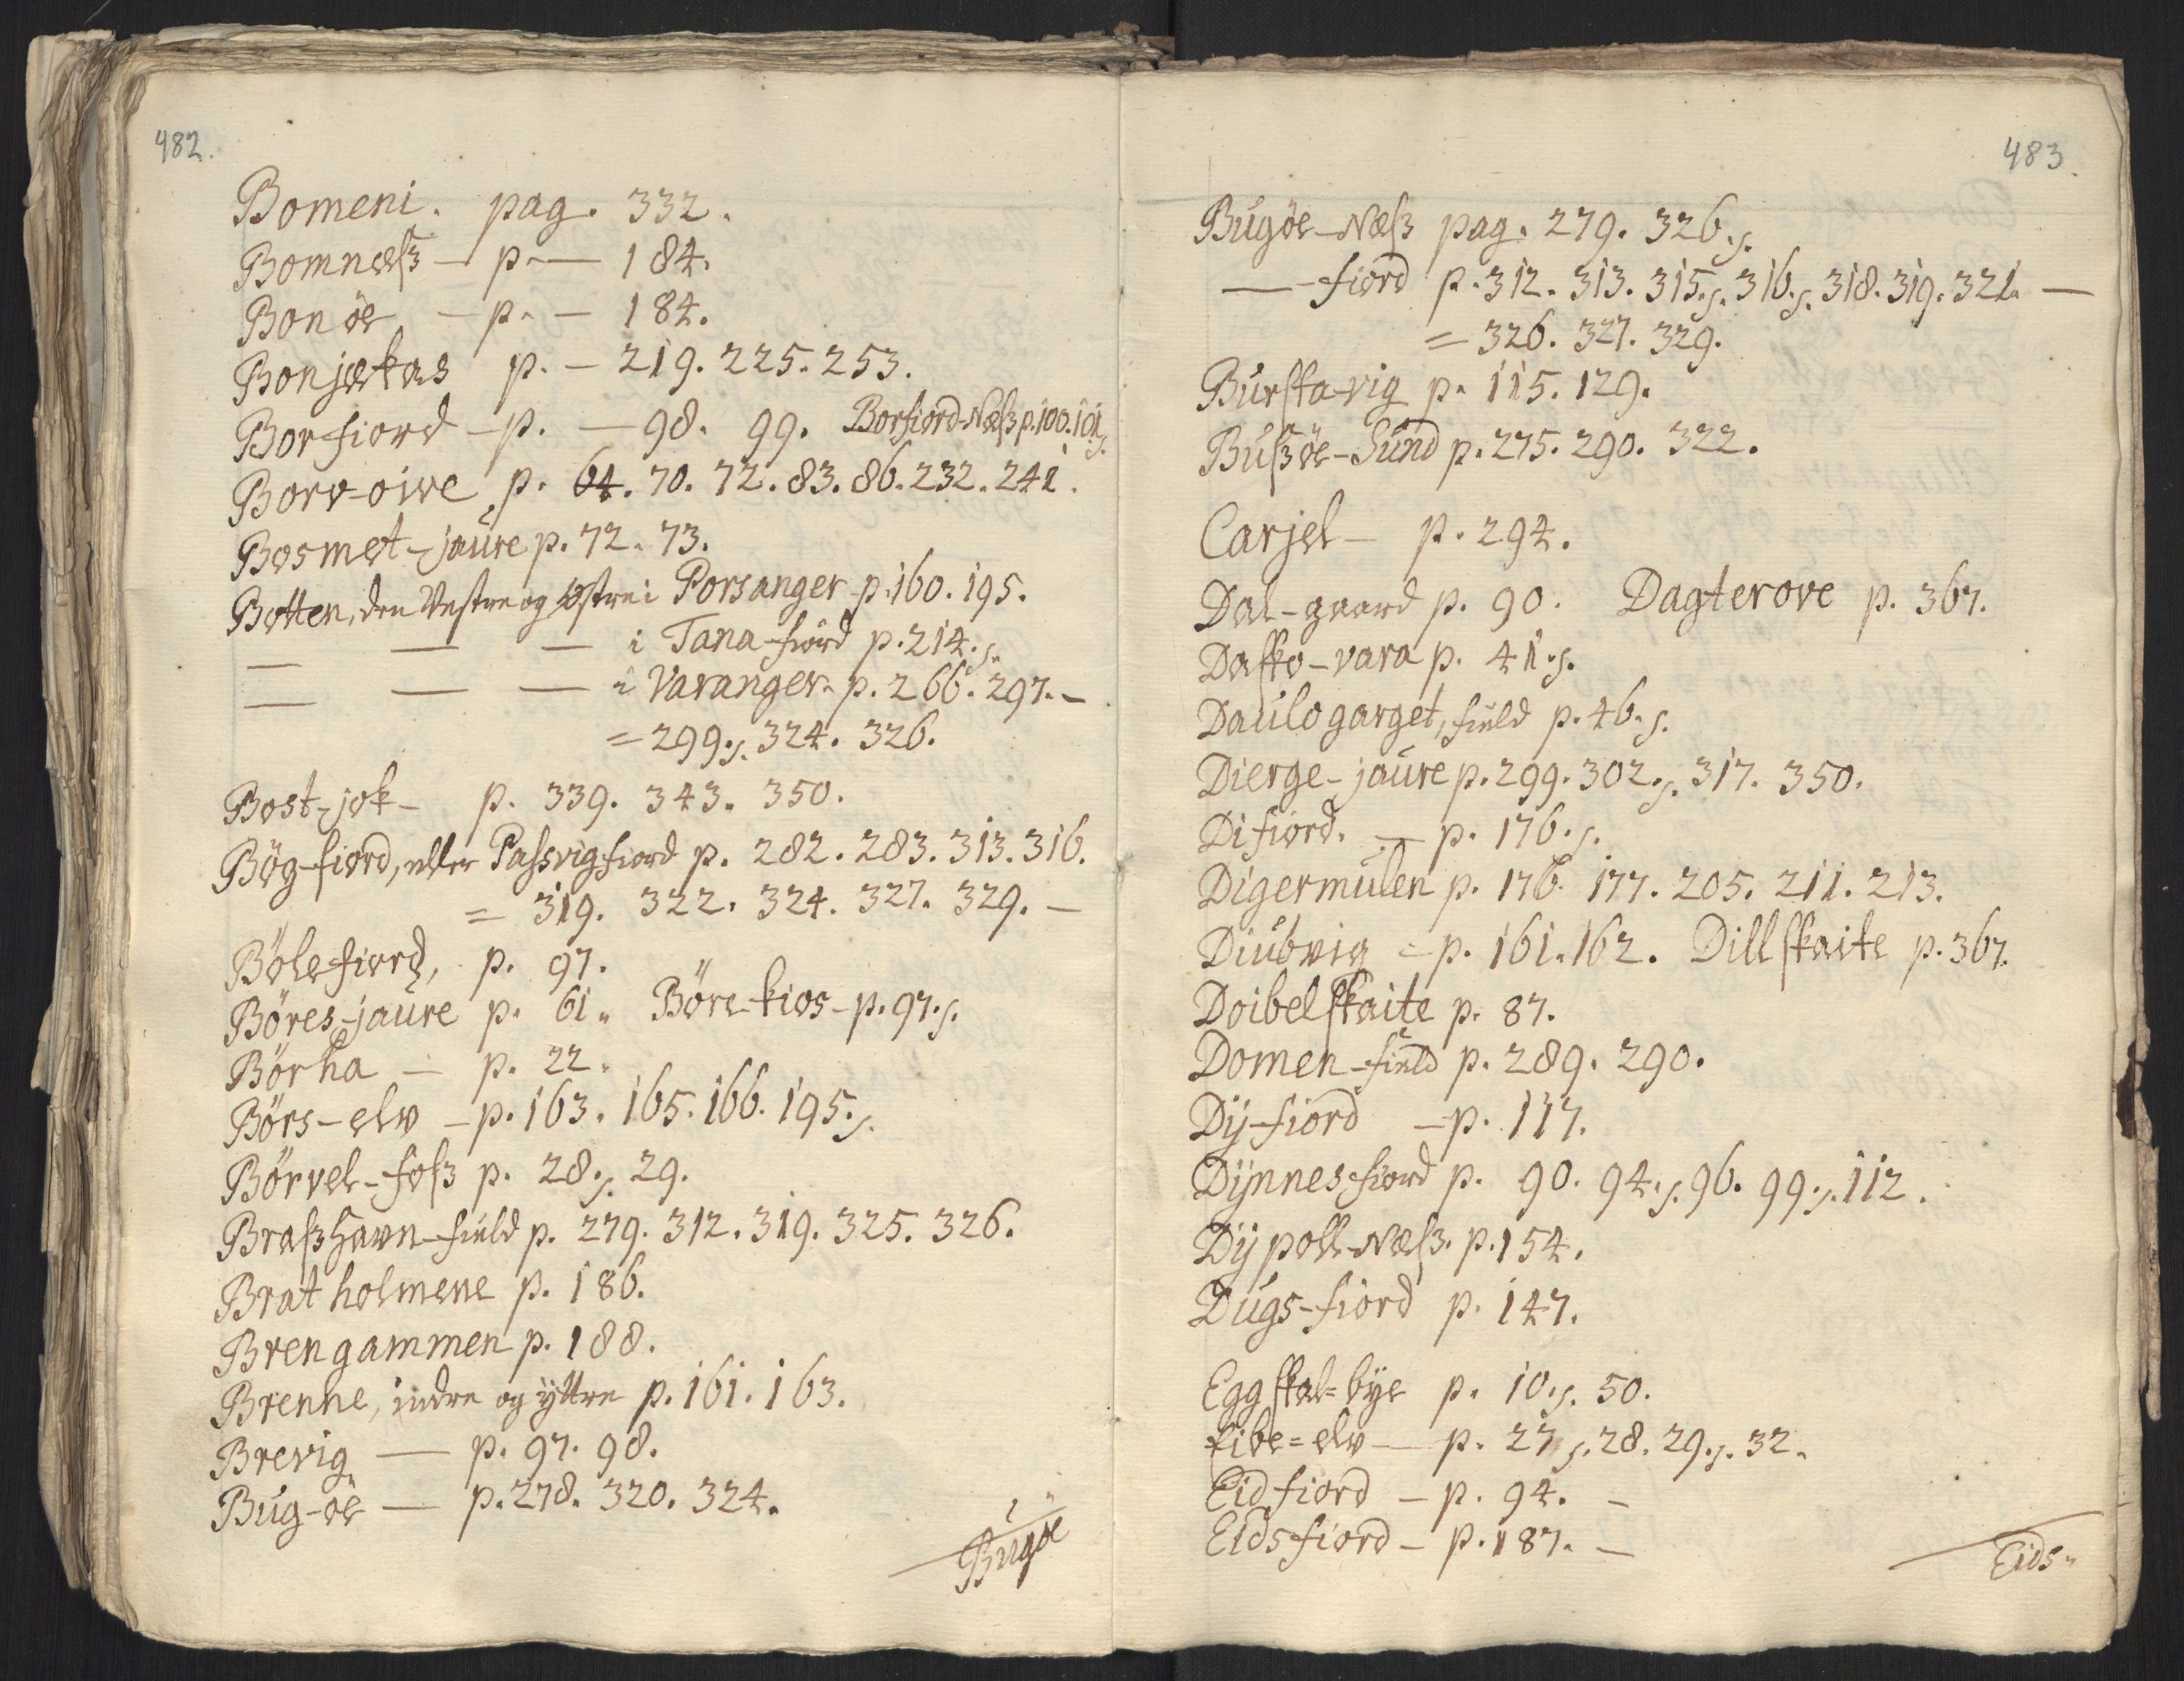 482.
Bomeni. pag. 332.
Bomnæss — p. — 184.
Bonöe — p. — 184.
Bonjækas p. — 219. 225. 253.
Borfiord — p. — 98. 99. Borfiord-Næss p. 100. 101.s.
Borv-oive p. 64. 70. 72. 83. 86. 232. 241.
Bosmet-jaure p. 72. 73.
Botten, den Vestre og Østre i Porsanger p. 160. 195.
— — — i Tana-fiord p. 214.s.
— — — i Varanger. p. 266. 297. —
= 299.s. 324. 326.
Bost-jok — p. 339. 343. 350.
Bög-fiord, eller Passvigfiord p. 282. 283. 313. 316.
= 319. 322. 324. 327. 329. —
Bölefiord, p. 97.
Böres-jaure p. 61. Böre-kios — p. 97.s.
Börha — p. 22.
Börs-elv — p. 163. 165. 166. 195.s.
Börvel-foss p. 28.s. 29.
Brasshavn-field p. 279. 312. 319. 325. 326.
Bratholmene p. 186.
Brengammen p. 188.
Brenne, indre og yttre p. 161. 163.
Brevig — p. 97. 98.
Bug-öe — p. 278. 320. 324.
Bugöe
483.
Bugöe-Næss pag. 279. 326.s.
— -fiord p. 312. 313. 315.s. 316.s. 318. 319. 321. —
= 326. 327. 329.
Burska-vig p. 115. 129.
Bussöe-Sund p. 275. 290. 322.
Carjel — p. 294.
Dal-gaard p. 90. Dagterove p. 367.
Dasko-vara p. 41.s.
Daulogarget, field p. 46.s.
Dierge-jaure p. 299. 302.s. 317. 350.
Difiord. — p. 176.s.
Digermulen p. 176. 177. 205. 211. 213.
Diubvig = p. 161. 162. Dillskaite p. 367.
Doibelskaite p. 87.
Domen-field p. 289. 290.
Dÿ-fiord — p. 117.
Dÿnnesfiord p. 90. 94.s. 96. 99.s. 112.
Dÿpoll-Næss. p. 154.
Dugs-fiord p. 147.
Eggskal=bÿe p. 10.s. 50.
Eibe=elv — p. 27.s. 28. 29.s. 32.
Eidfiord — p. 94. —
Eidsfiord — p. 187. —
Eids-